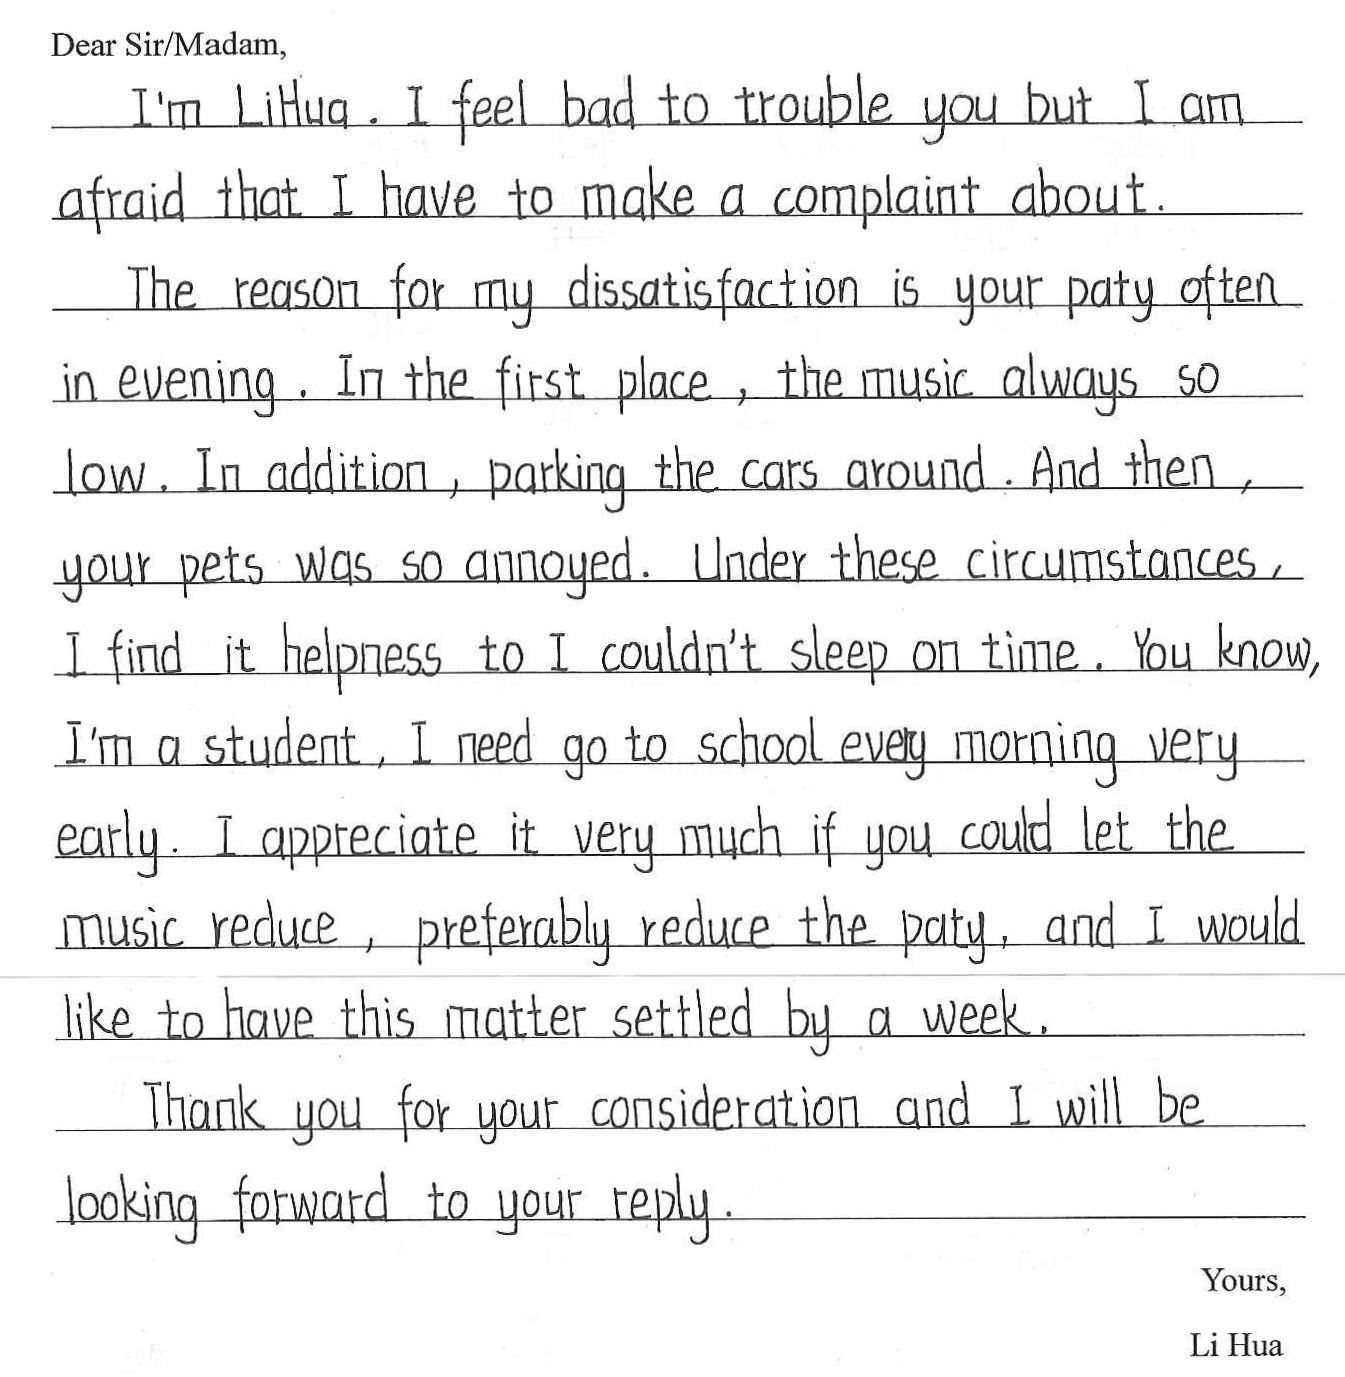 Dear Sir/Madam,
I'm LiHua. I feel bad to trouble you but I am
afraid that I have to make a complaint about.
The reason for my dissatisfaction is your paty often
in evening. In the first place, the music always so
low. In addition, parking the cars around. And then,
your pets was so annoyed. Under these circumstances,
I find it helpness to I couldn't sleep on time. You know,
I'm a student, I need go to school evey morning very
early. I appreciate it very much if you could let the
music reduce, preferably reduce the paty, and I would
like to have this matter settled by a week.
Thank you for your consideration and I will be
looking forward to your reply.
Yours,
Li Hua